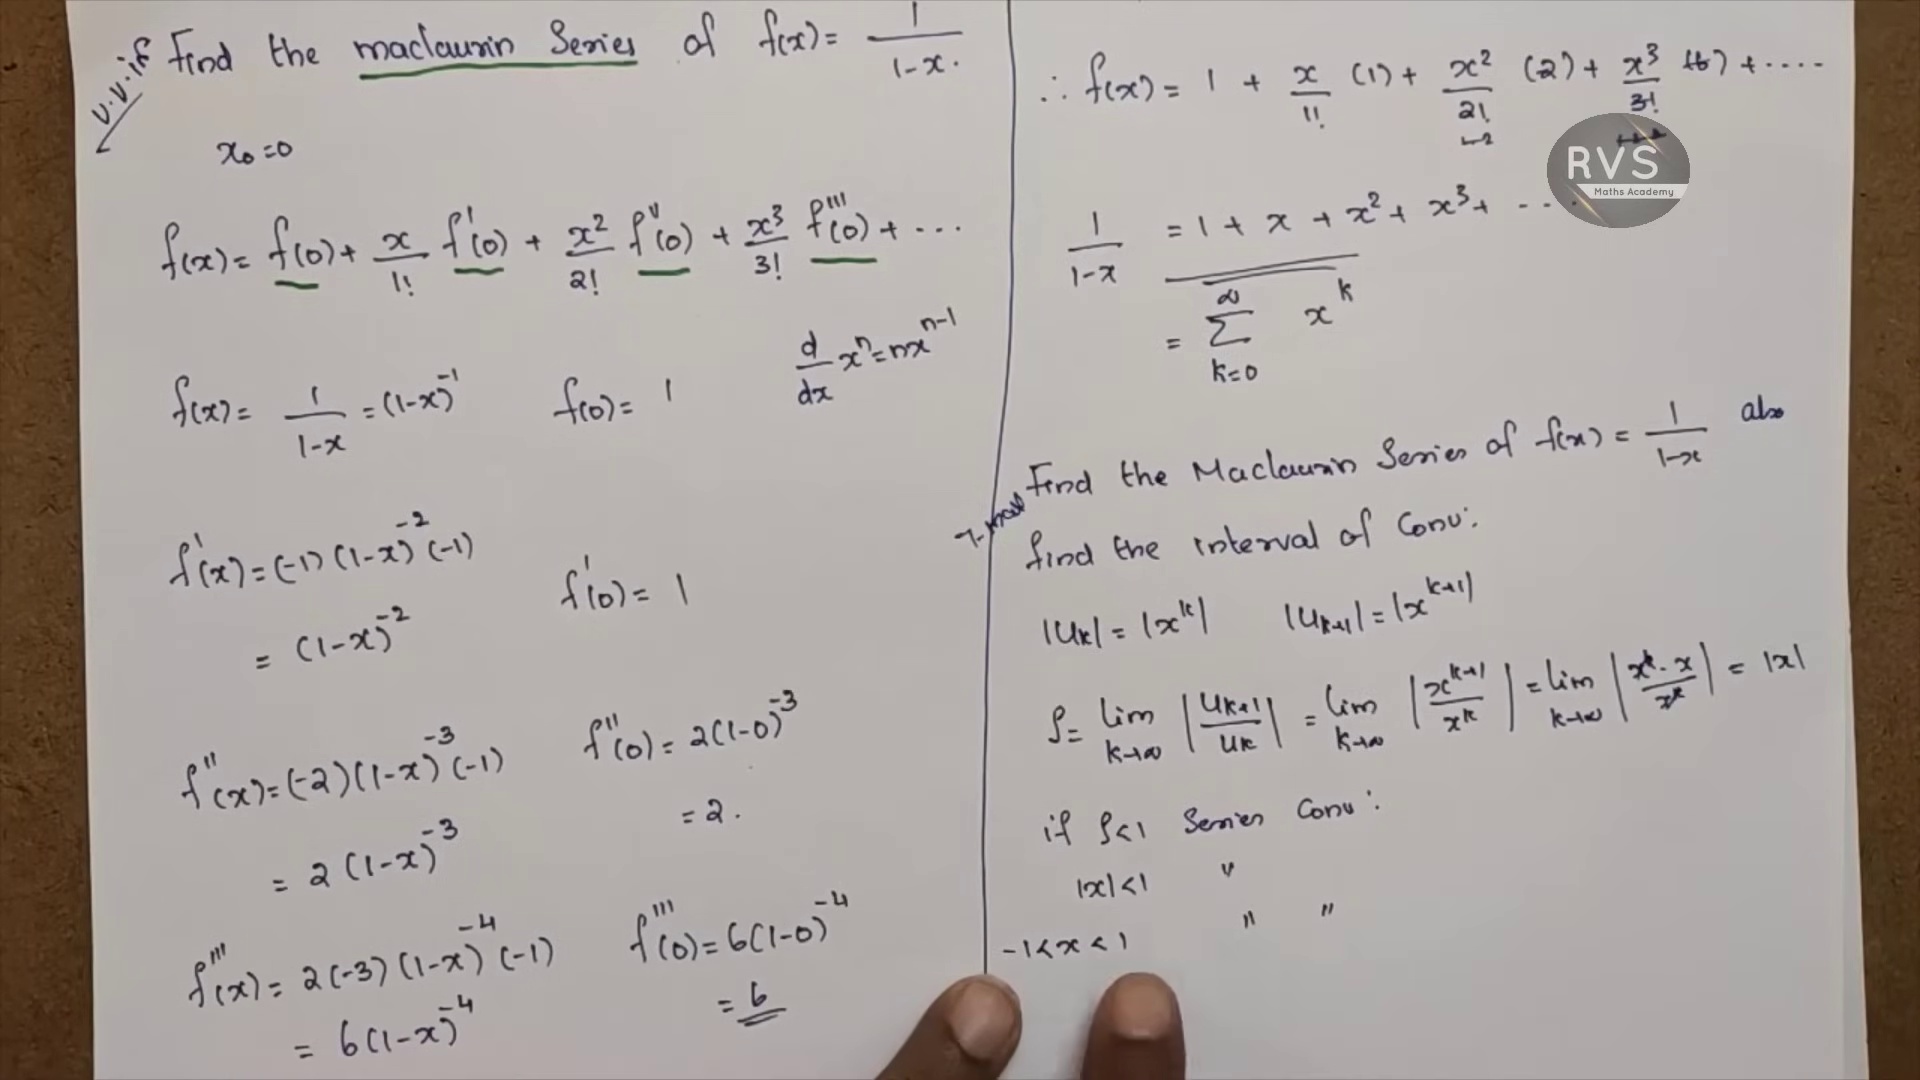 v.v.if Find the maclaurin Series of f(x) = 1/(1-x).
x₀=0
f(x) = f(0) + x/1! f'(0) + x²/2! f''(0) + x³/3! f'''(0) + ...
d/dx xⁿ = nxⁿ⁻¹
f(x) = 1/(1-x) = (1-x)⁻¹ f(0) = 1
f'(x) = (-1)(1-x)⁻²(-1) f'(0) = 1
= (1-x)⁻²
f''(x) = (-2)(1-x)⁻³(-1) f''(0) = 2(1-0)⁻³
= 2(1-x)⁻³ = 2.
f'''(x) = 2(-3)(1-x)⁻⁴(-1) f'''(0) = 6(1-0)⁻⁴
= 6(1-x)⁻⁴ = 6
∴ f(x) = 1 + x/1! (1) + x²/2! (2) + x³/3! (6) + ....
RVS
Maths Academy
1/(1-x) = 1 + x + x² + x³ + ....
= ∑_{k=0}^{∞} x^k
7-mark
Find the Maclaurin Series of f(x) = 1/(1-x) also
find the interval of Conv:
|U_k| = |x^k| |U_{k+1}| = |x^{k+1}|
ρ = lim_{k→∞} |U_{k+1}/U_k| = lim_{k→∞} |x^{k+1}/x^k| = lim_{k→∞} |x^k·x/x^k| = |x|
if ρ<1 Series Conv:
|x|<1 "
-1<x<1 " "